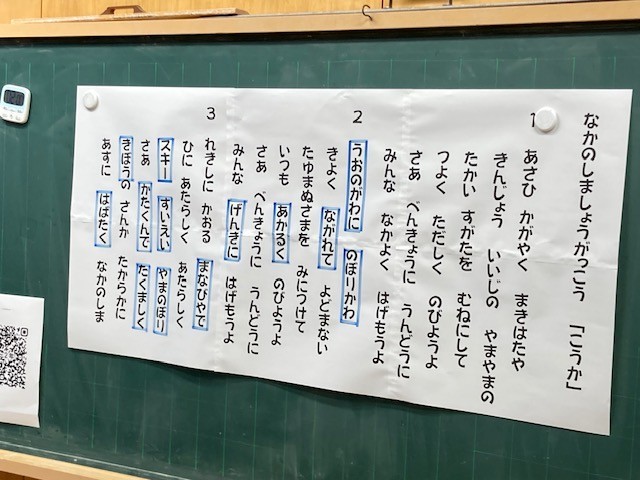 なかのしましょうがっこう 「こうか」
1
あさひ かがやく まきはたや
きんじょう いいじの やまやまの
たかい すがたを むねにして
つよく ただしく のびようよ
さあ べんきょうに うんどうに
みんな なかよく はげもうよ
2
うおのがわに のぼりかわ
きよく ながれて よどまない
たゆまぬさまを みにつけて
いつも あかるく のびようよ
さあ べんきょうに うんどうに
みんな げんきに はげもうよ
3
れきしに かおる まなびやで
ひに あたらしく あたらしく
スキー すいえい やまのぼり
さあ かたくんで たくましく
きぼうの さんが たからかに
あすに はばたく なかのしま